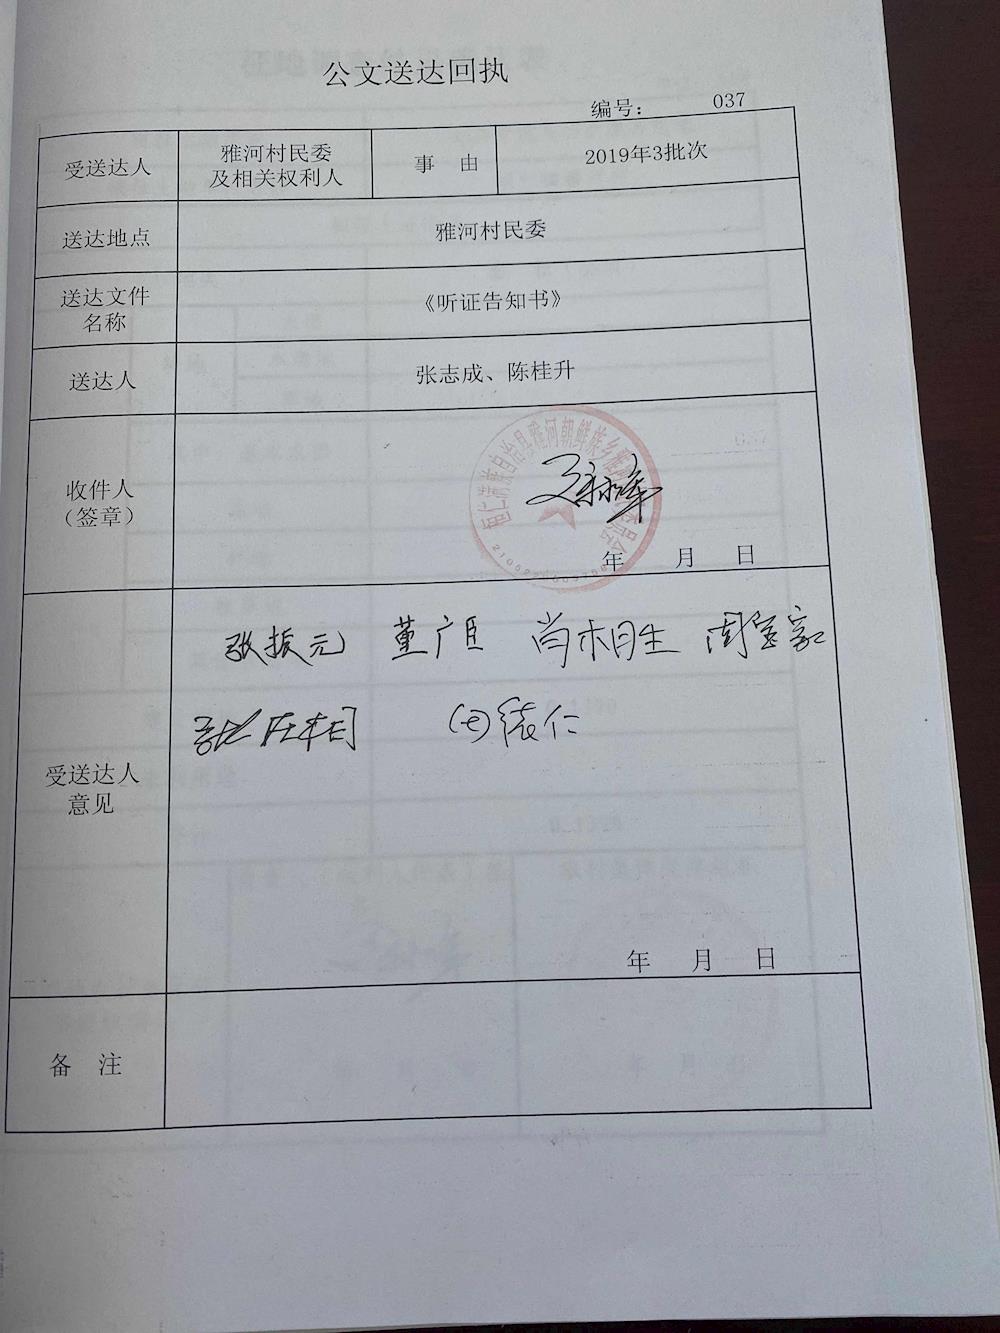 公文送达回执
编号： 037
受送达人
雅河村民委
及相关权利人
事 由
2019年3批次
送达地点
雅河村民委
送达文件
名称
《听证告知书》
送达人
张志成、陈桂升
收件人
（签章）
年 月 日
张振元 董广臣
受送达人
意见
年 月 日
备 注